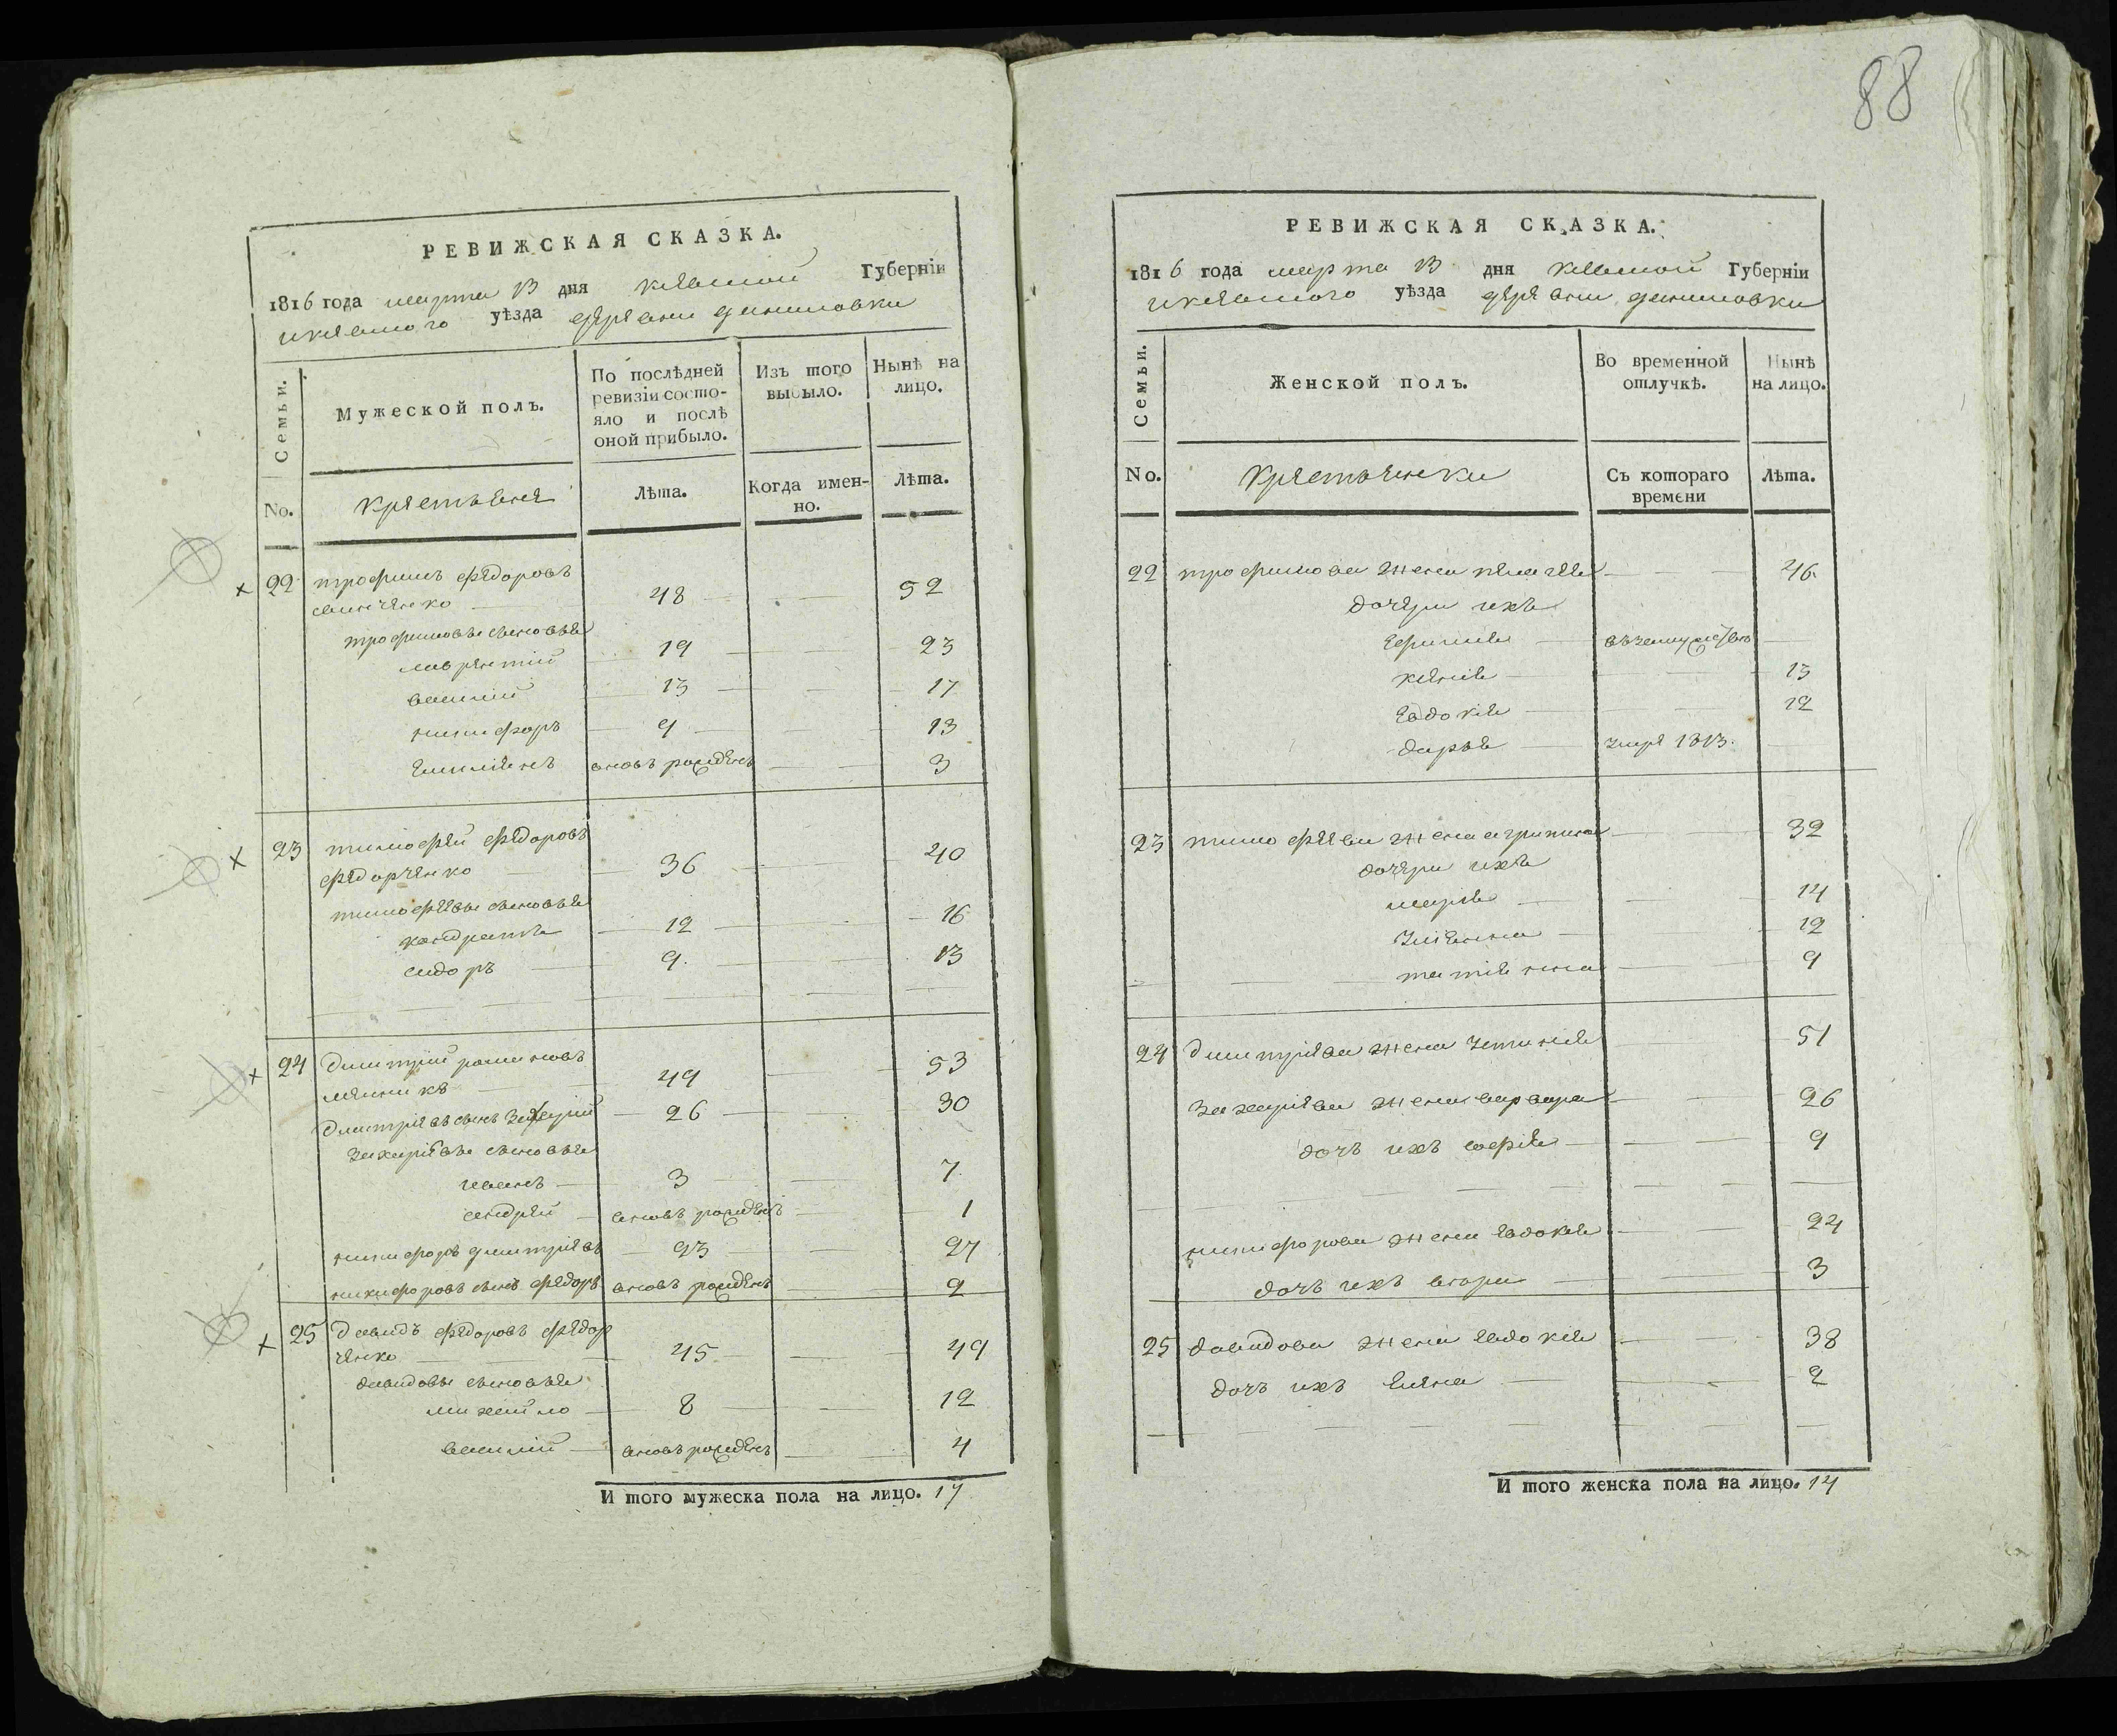 88
РЕВИЖСКАЯ СКАЗКА.
1816 года марта 13 дня киевской Губерніи
икіевского уѣзда деревни даниловки
Семьи.
Мужеской полъ.
По послѣдней
ревизіи состо-
яло и послѣ
оной прибыло.
Изъ того
выбыло.
Нынѣ на
лицо.
No.
крестьяне
Лѣта.
Когда имен-
но.
Лѣта.
22 трофимъ федоровъ
48 52
трофимовы сыновья
лаврентій 19 23
василій 13 17
никифоръ 9 13
емиліянъ вновъ рожденъ 3
23 тимофей федоровъ
федорченко 36 40
тимофеевы сыновья
кондратъ 12 16
сидоръ 9 13
24 дмитрій романовъ
49 53
дмитріевъ сынъ захарій 26 30
захаріевы сыновья
иванъ 3 7
андрей вновъ рожденъ 1
никифоръ дмитріевъ 23 27
никифоровъ сынъ федоръ вновъ рожденъ 2
25 давидъ федоровъ федор
ченко 45 49
давидовы сыновья
михайло 8 12
василій вновъ рожденъ 4
И того мужеска пола на лицо. 17
РЕВИЖСКАЯ СКАЗКА.
1816 года марта 13 дня киевской Губерніи
икіевского уѣзда деревни даниловки
Семьи.
Женской полъ.
Во временной
отлучкѣ.
Нынѣ
на лицо.
No.
крестьянки
Съ котораго
времени
Лѣта.
22 трофимова жена пелагея 46
дочери ихъ
ефимія взамужествѣ
ксенія 13
евдокія 12
дарья 1813.
23 тимофеева жена агрипина 32
дочери ихъ
марія 14
уліянна 12
татіянна 9
24 дмитріева жена устинія 51
захаріева жена варвара 26
дочь ихъ софія 9
никифорова жена евдокія 24
дочь ихъ 3
25 давидова жена евдокія 38
дочь ихъ елена 2
И того женска пола на лицо. 14